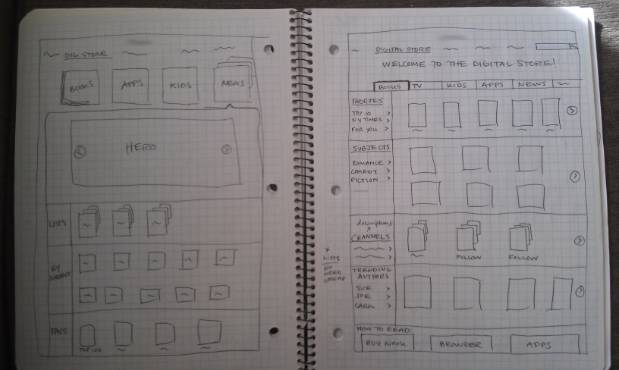 DIG STORE
BOOKS
APPS
KIDS
NEWS
HERO
LISTS
FAVS
DIGITAL STORE
WELCOME TO THE DIGITAL STORE!
BOOKS TV KIDS APPS NEWS
TOP 10 >
NY TIMES >
FOR YOU >
SUBJECTS
ROMANCE >
COMEDY >
FICTION >
CHANNELS
FOLLOW FOLLOW
LISTS
TRENDING
AUTHORS
SUE >
JOE >
CAROL >
HOW TO READ
BUY NOOK BROWSER APPS